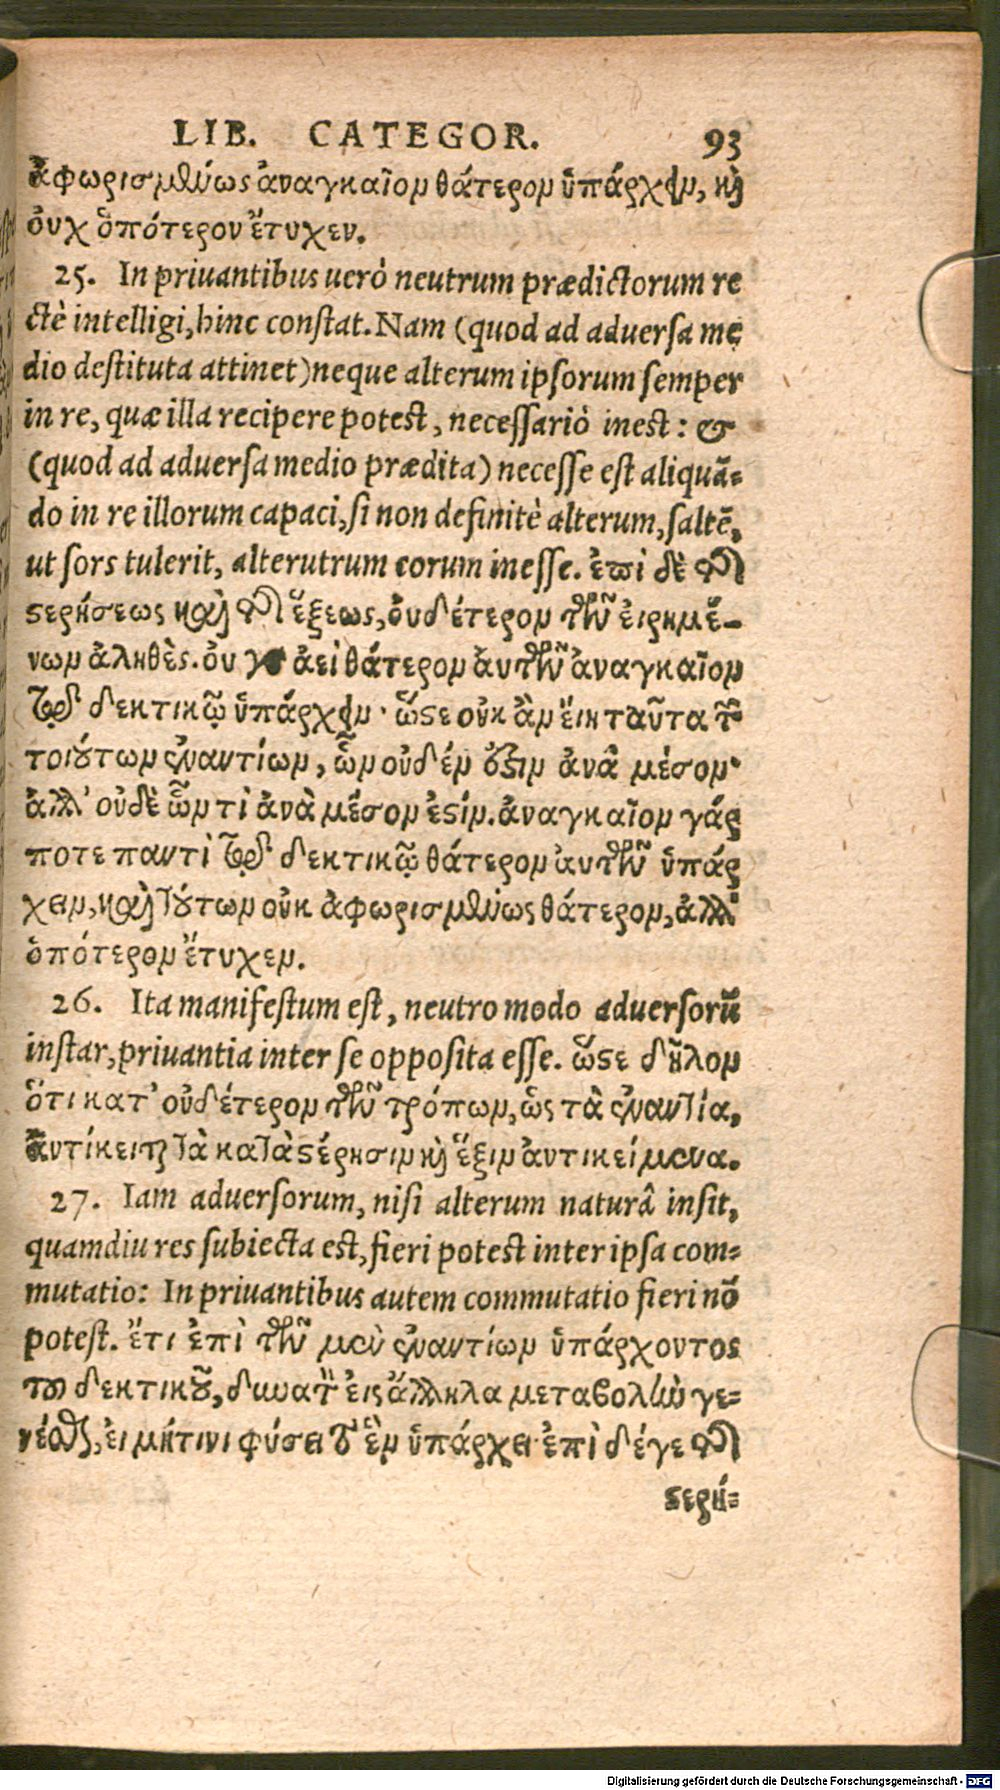 LIB. CATEGOR. 93
ἀφωρισμένως ἀναγκαῖον θάτερον ὑπάρχειν, καὶ
οὐχ ὁπότερον ἔτυχεν.
25. In priuantibus uerò neutrum prædictorum re
ctè intelligi, hinc constat. Nam (quod ad aduersa me
dio destituta attinet) neque alterum ipsorum semper
in re, quæ illa recipere potest, necessariò inest: &
(quod ad aduersa medio prædita) necesse est aliquã-
do in re illorum capaci, si non definitè alterum, saltẽ,
ut sors tulerit, alterutrum eorum inesse. ἐπὶ δὲ τῆς
στερήσεως καὶ τῆς ἕξεως, οὐδέτερον τῶν εἰρημέ-
νων ἀληθὲς. οὐ γὰρ ἀεὶ θάτερον αὐτῶν ἀναγκαῖον
τῷ δεκτικῷ ὑπάρχειν· ὥστε οὐκ ἂν εἴη ταῦτα τῶν
τοιούτων ἐναντίων, ὧν οὐδέν ἐστιν ἀνὰ μέσον·
ἀλλ' οὐδὲ ὧν τὶ ἀνὰ μέσον ἐστίν. ἀναγκαῖον γάρ
ποτε παντὶ τῷ δεκτικῷ θάτερον αὐτῶν ὑπάρ
χειν, καὶ τούτων οὐκ ἀφωρισμένως θάτερον, ἀλλ'
ὁπότερον ἔτυχεν.
26. Ita manifestum est, neutro modo aduersorũ
instar, priuantia inter se opposita esse. ὥστε δῆλον
ὅτι κατ' οὐδέτερον τῶν τρόπων, ὡς τὰ ἐναντία,
ἀντίκειται τὰ κατὰ στέρησιν καὶ ἕξιν ἀντικείμενα.
27. Iam aduersorum, nisi alterum naturâ insit,
quamdiu res subiecta est, fieri potest inter ipsa com-
mutatio: In priuantibus autem commutatio fieri nõ
potest. ἔτι ἐπὶ τῶν μὲν ἐναντίων ὑπάρχοντος
τοῦ δεκτικοῦ, δυνατὸν εἰς ἄλληλα μεταβολὴν γε-
νέσθαι, εἰ μήτινι φύσει τὸ ἓν ὑπάρχει· ἐπὶ δέγε τῆς
στερή-
Digitalisierung gefördert durch die Deutsche Forschungsgemeinschaft - DFG